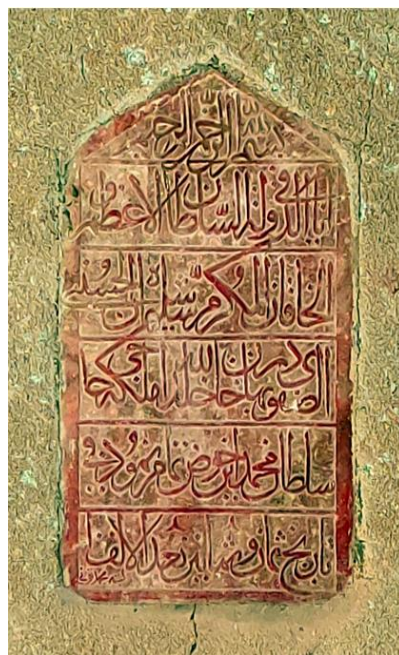 بسم الله الرحمن الرحیم
فی ایام الدولة السلطان الاعظم
الخاقان المکرم سلیمان الحسینی
الصفوی بهادر خان خلد الله ملکه حاجی
سلطان محمد این حوض تمام نمود
تاریخ ثمان و ثمانین بعد الالف